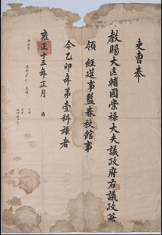 吏曹奉
教賜大匡輔國崇祿大夫議政府右議政兼
領 經筵事監春秋館事
今乙卯年第壹科祿者
雍正十三年正月 日